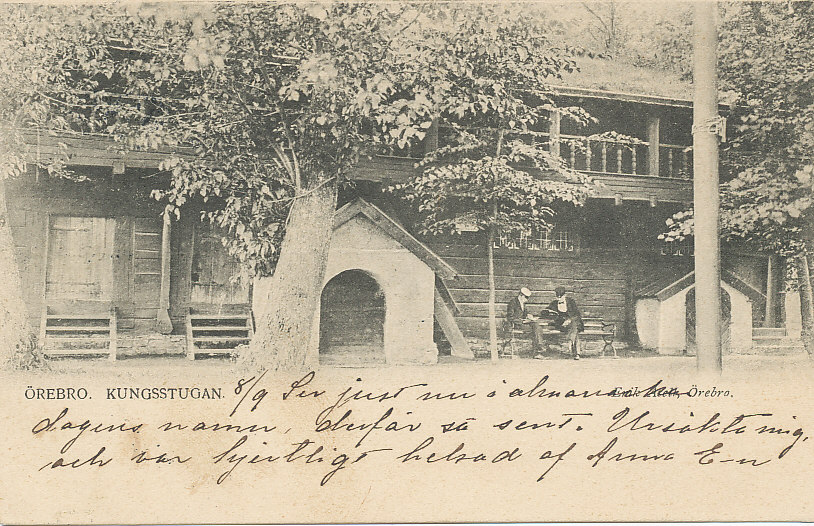 ÖREBRO. KUNGSSTUGAN. 8/9 Ser just nu i almanack-
Örebro.
dagens namn, derför så sent. Ursäkta mig,
och var hjertligt helsad af Anna E-n